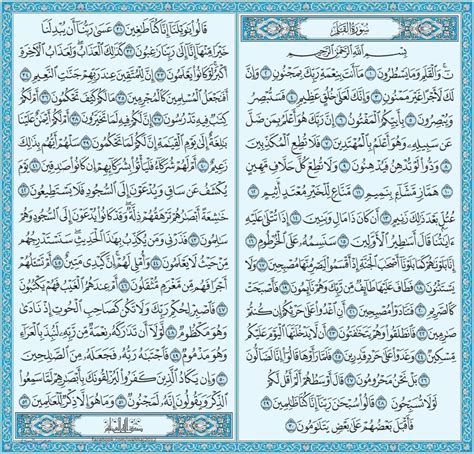 سُورَةُ القَلَمِ
بِسْمِ اللَّهِ الرَّحْمَٰنِ الرَّحِيمِ
نٓ وَالْقَلَمِ وَمَا يَسْطُرُونَ ١ مَا أَنتَ بِنِعْمَةِ رَبِّكَ بِمَجْنُونٍ ٢ وَإِنَّ
لَكَ لَأَجْرًا غَيْرَ مَمْنُونٍ ٣ وَإِنَّكَ لَعَلَىٰ خُلُقٍ عَظِيمٍ ٤ فَسَتُبْصِرُ
وَيُبْصِرُونَ ٥ بِأَييِّكُمُ الْمَفْتُونُ ٦ إِنَّ رَبَّكَ هُوَ أَعْلَمُ بِمَن ضَلَّ
عَن سَبِيلِهِ وَهُوَ أَعْلَمُ بِالْمُهْتَدِينَ ٧ فَلَا تُطِعِ الْمُكَذِّبِينَ
٨ وَدُّوا لَوْ تُدْهِنُ فَيُدْهِنُونَ ٩ وَلَا تُطِعْ كُلَّ حَلَّافٍ مَّهِينٍ
١٠ هَمَّازٍ مَّشَّاءٍ بِنَمِيمٍ ١١ مَّنَّاعٍ لِّلْخَيْرِ مُعْتَدٍ أَثِيمٍ ١٢
عُتُلٍّ بَعْدَ ذَٰلِكَ زَنِيمٍ ١٣ أَن كَانَ ذَا مَالٍ وَبَنِينَ ١٤ إِذَا تُتْلَىٰ عَلَيْهِ
ءَايَٰتُنَا قَالَ أَسَٰطِيرُ الْأَوَّلِينَ ١٥ سَنَسِمُهُ عَلَى الْخُرْطُومِ ١٦
إِنَّا بَلَوْنَٰهُمْ كَمَا بَلَوْنَا أَصْحَٰبَ الْجَنَّةِ إِذْ أَقْسَمُوا لَيَصْرِمُنَّهَا مُصْبِحِينَ ١٧
وَلَا يَسْتَثْنُونَ ١٨ فَطَافَ عَلَيْهَا طَائِفٌ مِّن رَّبِّكَ وَهُمْ نَائِمُونَ ١٩
فَأَصْبَحَتْ كَالصَّرِيمِ ٢٠ فَتَنَادَوْا مُصْبِحِينَ ٢١ أَنِ اغْدُوا عَلَىٰ حَرْثِكُمْ إِن كُنتُمْ
صَٰرِمِينَ ٢٢ فَانطَلَقُوا وَهُمْ يَتَخَٰفَتُونَ ٢٣ أَن لَّا يَدْخُلَنَّهَا الْيَوْمَ عَلَيْكُم
مِّسْكِينٌ ٢٤ وَغَدَوْا عَلَىٰ حَرْدٍ قَٰدِرِينَ ٢٥ فَلَمَّا رَأَوْهَا قَالُوا إِنَّا لَضَالُّونَ
٢٦ بَلْ نَحْنُ مَحْرُومُونَ ٢٧ قَالَ أَوْسَطُهُمْ أَلَمْ أَقُل لَّكُمْ
لَوْلَا تُسَبِّحُونَ ٢٨ قَالُوا سُبْحَٰنَ رَبِّنَا إِنَّا كُنَّا ظَٰلِمِينَ ٢٩
فَأَقْبَلَ بَعْضُهُمْ عَلَىٰ بَعْضٍ يَتَلَٰوَمُونَ ٣٠
قَالُوا يَٰوَيْلَنَا إِنَّا كُنَّا طَٰغِينَ ٣١ عَسَىٰ رَبُّنَا أَن يُبْدِلَنَا
خَيْرًا مِّنْهَا إِنَّا إِلَىٰ رَبِّنَا رَٰغِبُونَ ٣٢ كَذَٰلِكَ الْعَذَابُ وَلَعَذَابُ الْءَاخِرَةِ
أَكْبَرُ لَوْ كَانُوا يَعْلَمُونَ ٣٣ إِنَّ لِلْمُتَّقِينَ عِندَ رَبِّهِمْ جَنَّٰتِ النَّعِيمِ ٣٤
أَفَنَجْعَلُ الْمُسْلِمِينَ كَالْمُجْرِمِينَ ٣٥ مَا لَكُمْ كَيْفَ تَحْكُمُونَ ٣٦ أَمْ لَكُمْ
كِتَٰبٌ فِيهِ تَدْرُسُونَ ٣٧ إِنَّ لَكُمْ فِيهِ لَمَا تَخَيَّرُونَ ٣٨ أَمْ لَكُمْ أَيْمَٰنٌ عَلَيْنَا
بَٰلِغَةٌ إِلَىٰ يَوْمِ الْقِيَٰمَةِ إِنَّ لَكُمْ لَمَا تَحْكُمُونَ ٣٩ سَلْهُمْ أَيُّهُم بِذَٰلِكَ
زَعِيمٌ ٤٠ أَمْ لَهُمْ شُرَكَاءُ فَلْيَأْتُوا بِشُرَكَائِهِمْ إِن كَانُوا صَٰدِقِينَ ٤١ يَوْمَ
يُكْشَفُ عَن سَاقٍ وَيُدْعَوْنَ إِلَى السُّجُودِ فَلَا يَسْتَطِيعُونَ ٤٢
خَٰشِعَةً أَبْصَٰرُهُمْ تَرْهَقُهُمْ ذِلَّةٌ وَقَدْ كَانُوا يُدْعَوْنَ إِلَى السُّجُودِ وَهُمْ
سَٰلِمُونَ ٤٣ فَذَرْنِي وَمَن يُكَذِّبُ بِهَٰذَا الْحَدِيثِ سَنَسْتَدْرِجُهُم
مِّنْ حَيْثُ لَا يَعْلَمُونَ ٤٤ وَأُمْلِي لَهُمْ إِنَّ كَيْدِي مَتِينٌ ٤٥ أَمْ تَسْـَٔلُهُمْ
أَجْرًا فَهُم مِّن مَّغْرَمٍ مُّثْقَلُونَ ٤٦ أَمْ عِندَهُمُ الْغَيْبُ فَهُمْ يَكْتُبُونَ
٤٧ فَاصْبِرْ لِحُكْمِ رَبِّكَ وَلَا تَكُن كَصَاحِبِ الْحُوتِ إِذْ نَادَىٰ
وَهُوَ مَكْظُومٌ ٤٨ لَّوْلَا أَن تَدَٰرَكَهُ نِعْمَةٌ مِّن رَّبِّهِ لَنُبِذَ بِالْعَرَاءِ
وَهُوَ مَذْمُومٌ ٤٩ فَاجْتَبَٰهُ رَبُّهُ فَجَعَلَهُ مِنَ الصَّٰلِحِينَ
٥٠ وَإِن يَكَادُ الَّذِينَ كَفَرُوا لَيُزْلِقُونَكَ بِأَبْصَٰرِهِمْ لَمَّا سَمِعُوا
الذِّكْرَ وَيَقُولُونَ إِنَّهُ لَمَجْنُونٌ ٥١ وَمَا هُوَ إِلَّا ذِكْرٌ لِّلْعَٰلَمِينَ ٥٢